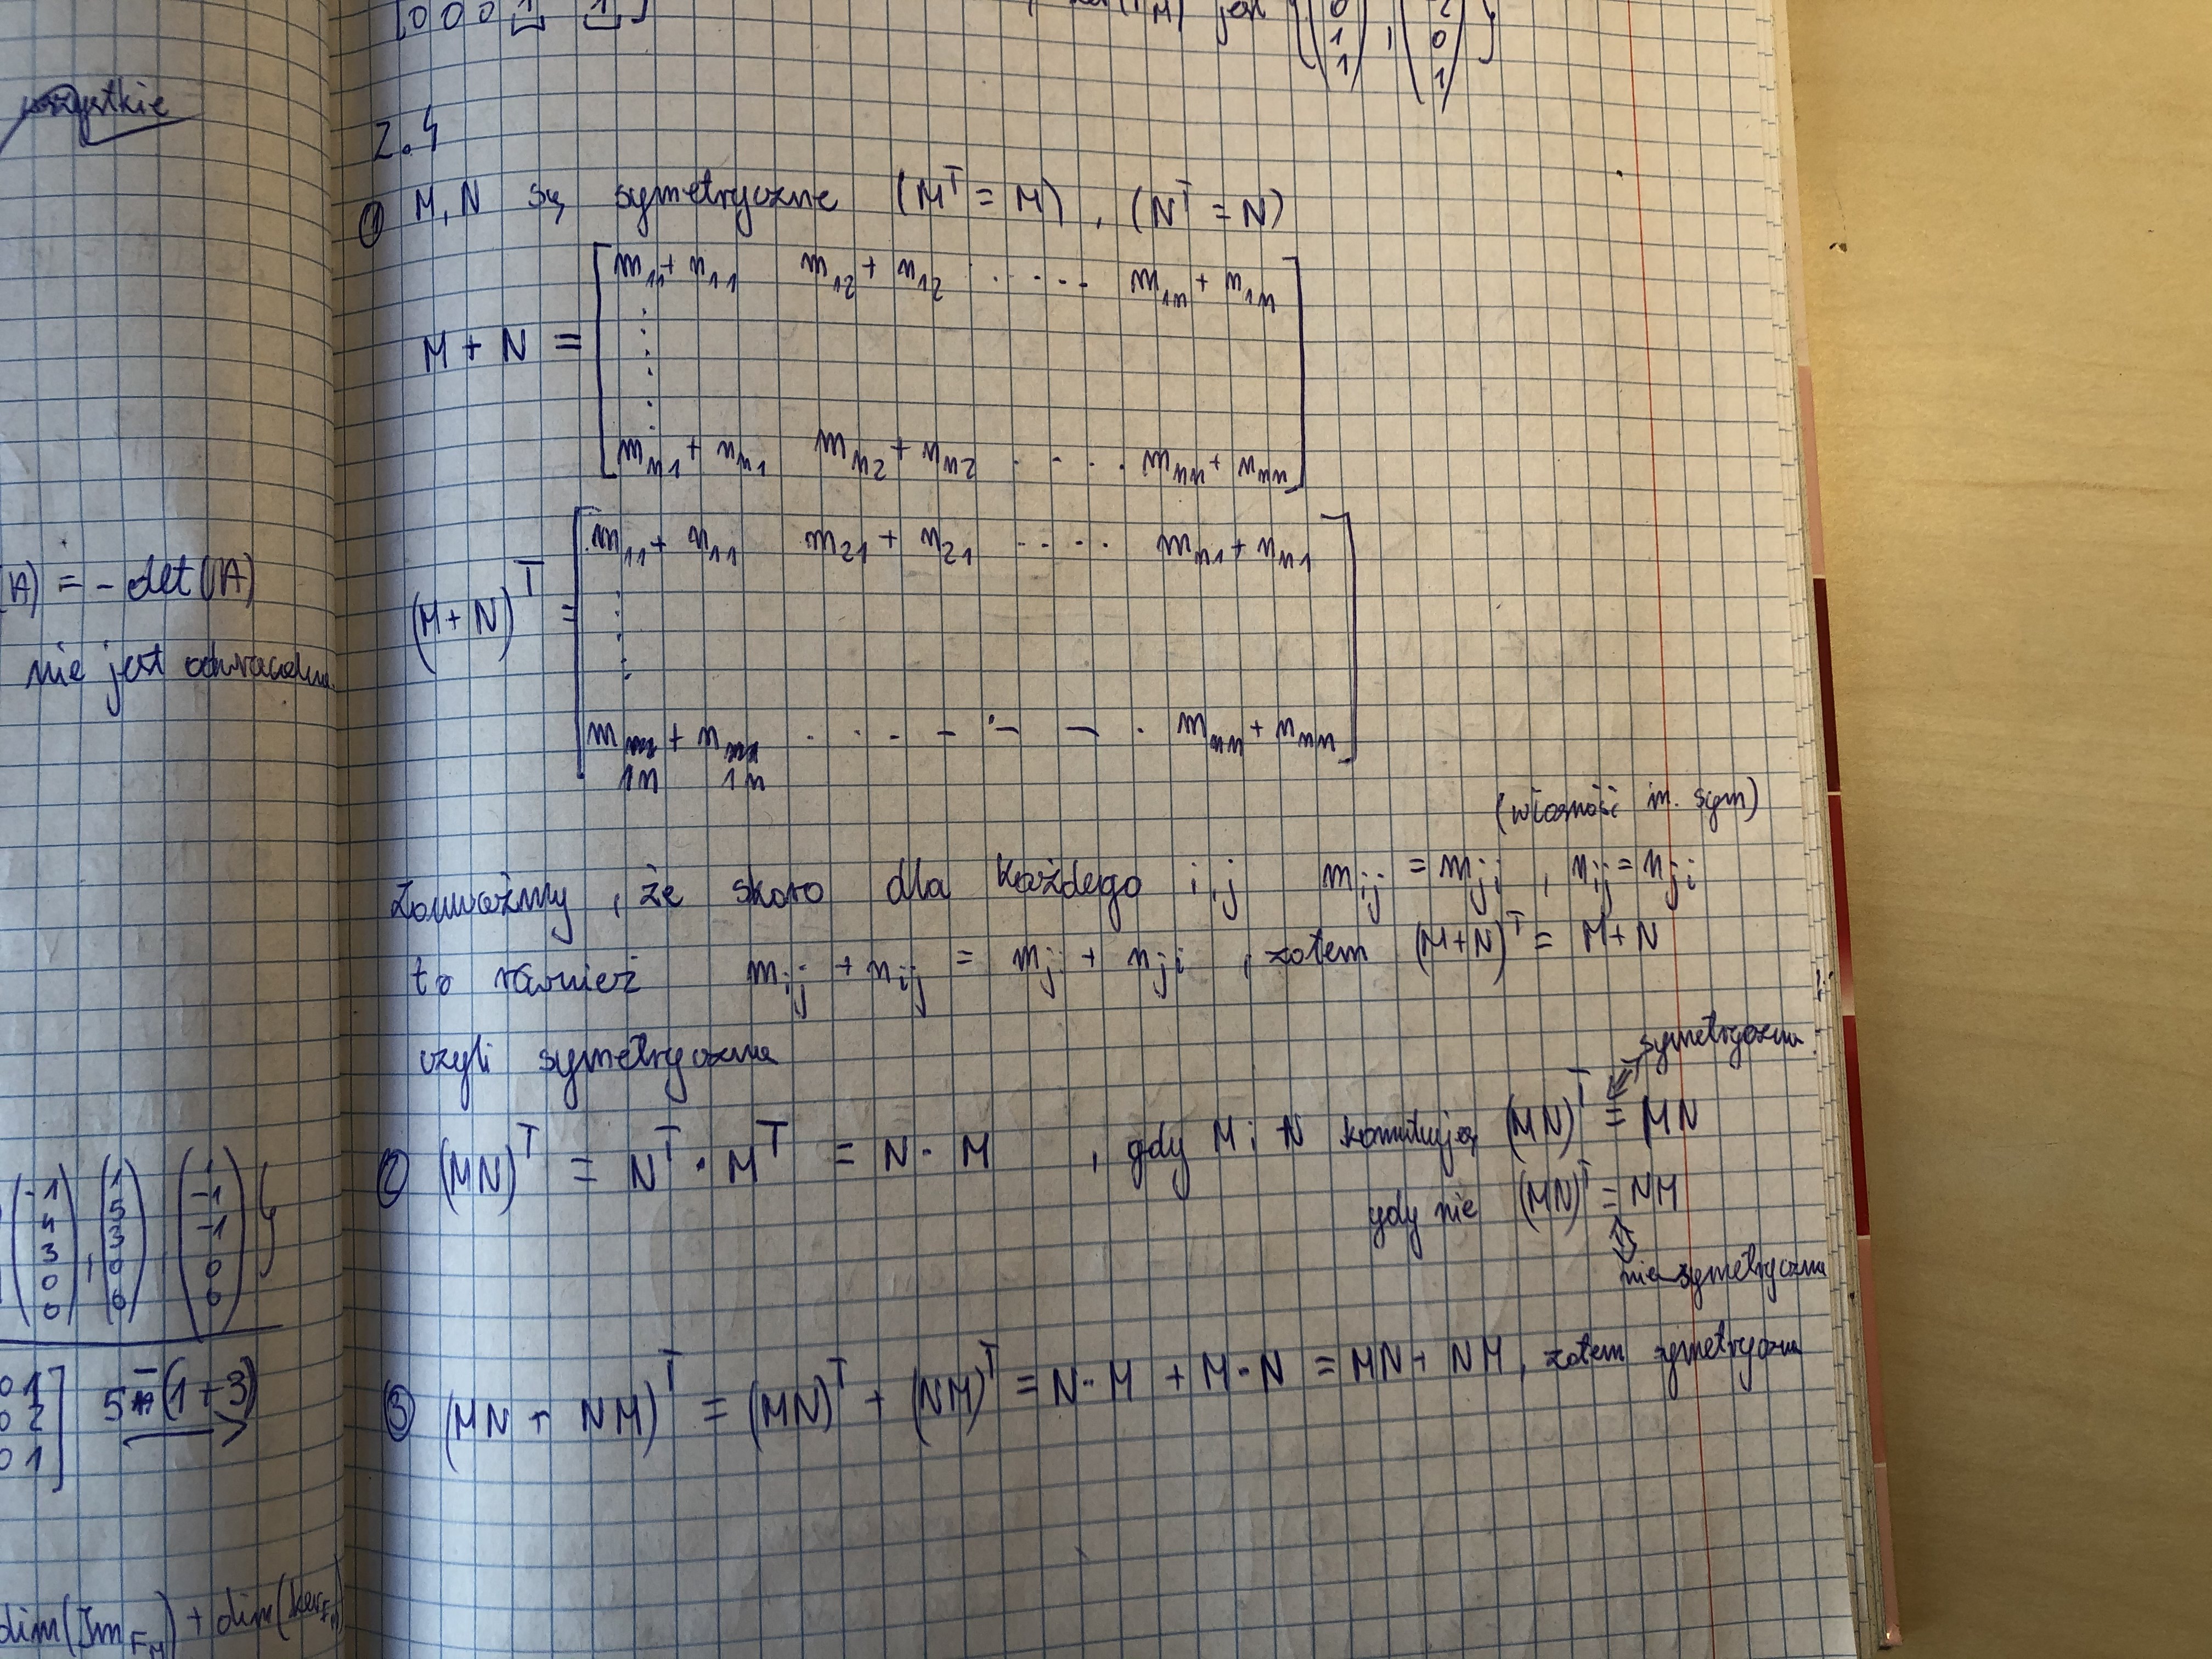 wszystkie
(A) = - det(A)
nie jest odwracalna
(-1 4 3 0 0), (1 5 3 0 0), (1 -1 -1 0 0)}
0 1] 5 - (1+3)
0 2
0 1]
dim(Im F_M) + dim(ker F_M)
[0 0 0 1 1]
jest {(0 1 1), (-2 0 1)}
2.4
① M, N są symetryczne (M^T = M), (N^T = N)
m_11 + n_11 m_12 + n_12 ..... m_1n + n_1n
M + N =
m_n1 + n_n1 m_n2 + n_n2 .... m_nn + n_nn
m_11 + n_11 m_21 + n_21 .... m_n1 + n_n1
(M+N)^T =
m_1n + n_1n ....... m_nn + n_nn
(własność m. sym)
Zauważmy, że skoro dla każdego i,j m_ij = m_ji, n_ij = n_ji
to również m_ij + n_ij = m_ji + n_ji, zatem (M+N)^T = M+N
czyli symetryczna
symetryczna
② (MN)^T = N^T · M^T = N · M, gdy M i N komutują (MN)^T = MN
gdy nie (MN)^T = NM
nie symetryczna
③ (MN + NM)^T = (MN)^T + (NM)^T = N·M + M·N = MN + NM, zatem symetryczna